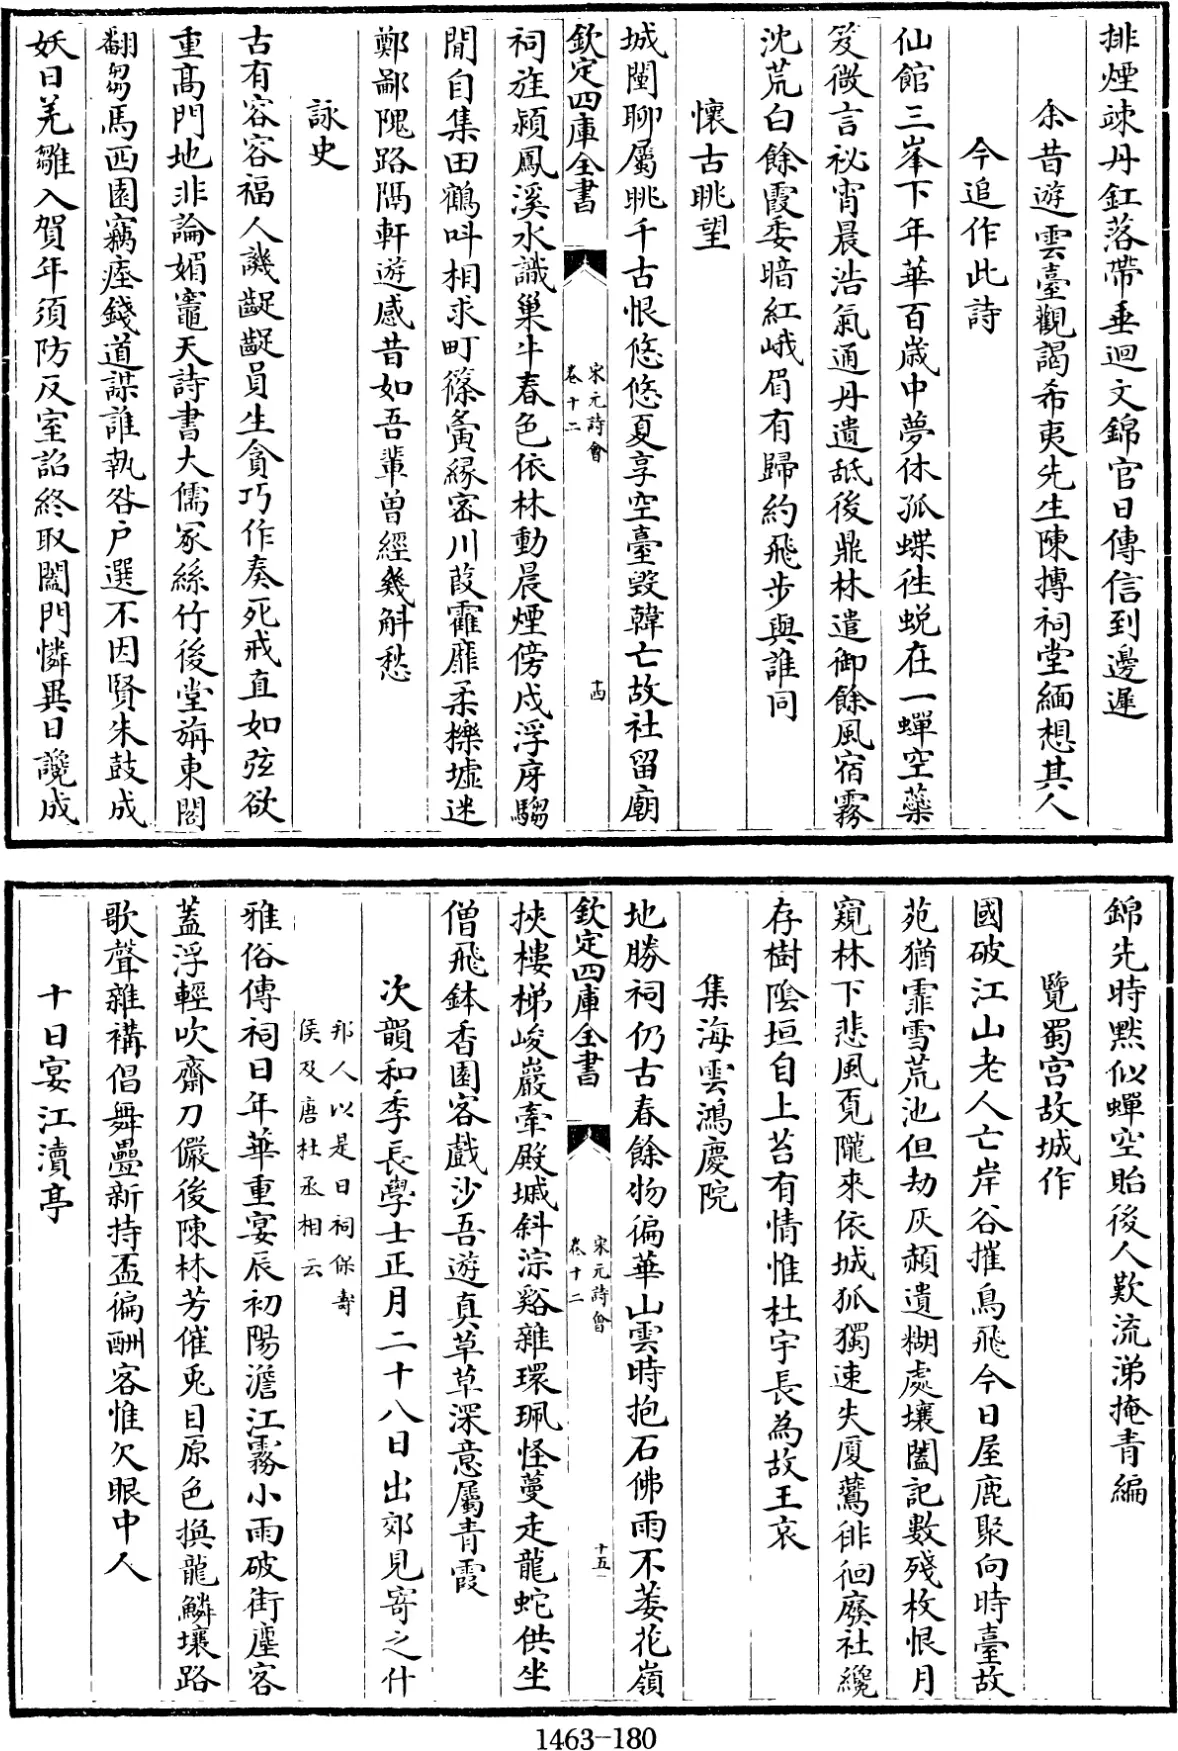 排煙竦丹釭落帶垂迴文錦官日傳信到邊遲
余昔遊雲臺觀謁希夷先生陳摶祠堂緬想其人
今追作此詩
仙館三峯下年華百歳中夢休孤蝶徃蛻在一蟬空藥
笈微言祕宵晨浩氣通丹遺舐後鼎林遣御餘風宿霧
沈荒白餘霞委暗紅峨眉有歸約飛步與誰同
懷古眺望
城闉聊屬眺千古恨悠悠夏享空臺毀韓亡故社留廟
欽定四庫全書
宋元詩會
卷十二
十四
祠旌潁鳳溪水識巢牛春色依林動晨煙傍戍浮庌騶
閒自集田鶴呌相求町篠夤緣密川葭靃靡柔櫟墟迷
鄭鄙隗路隅軒遊感昔如吾輩曽經幾斛愁
詠史
古有容容福人譏齪齪員生貪巧作奏死戒直如弦欲
重髙門地非論媚竈天詩書大儒冢絲竹後堂旃東閤
翻芻馬西園竊瘞錢道謀誰執咎户選不因賢朱鼓成
妖日羌雛入賀年須防反室訟終取闔門憐異日讒成
錦先時黙似蟬空貽後人歎流涕掩青編
覽蜀宫故城作
國破江山老人亡岸谷摧鳥飛今日屋鹿聚向時臺故
苑猶霏雪荒池但劫灰頳遺糊處壤闔記數殘枚恨月
窺林下悲風覔隴來依城狐獨速失厦鷰徘徊廢社纔
存樹隂垣自上苔有情惟杜宇長為故王哀
集海雲鴻慶院
地勝祠仍古春餘物徧華山雲時抱石佛雨不萎花嶺
欽定四庫全書
宋元詩會
卷十二
十五
挾樓梯峻巖牽殿墄斜淙谿雜環珮怪蔓走龍蛇供坐
僧飛鉢香園客戯沙吾遊真草草深意屬青霞
次韻和季長學士正月二十八日出郊見寄之什
邦人以是日祠保壽
侯及唐杜丞相云
雅俗傳祠日年華重宴辰初陽澹江霧小雨破街塵客
葢浮輕吹齋刀儼後陳林芳催兎目原色換龍鱗壤路
歌聲雜禣倡舞疊新持盃徧酬客惟欠眼中人
十日宴江瀆亭
1463-180